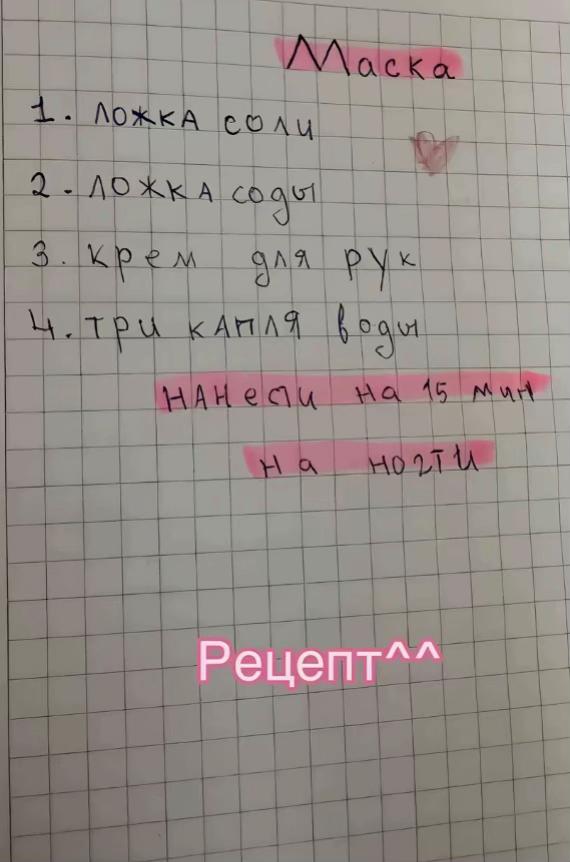 Маска
1. ложка соли
2. ложка соды
3. крем для рук
4. три капля воды
нанести на 15 мин
на ногти
Рецепт^^